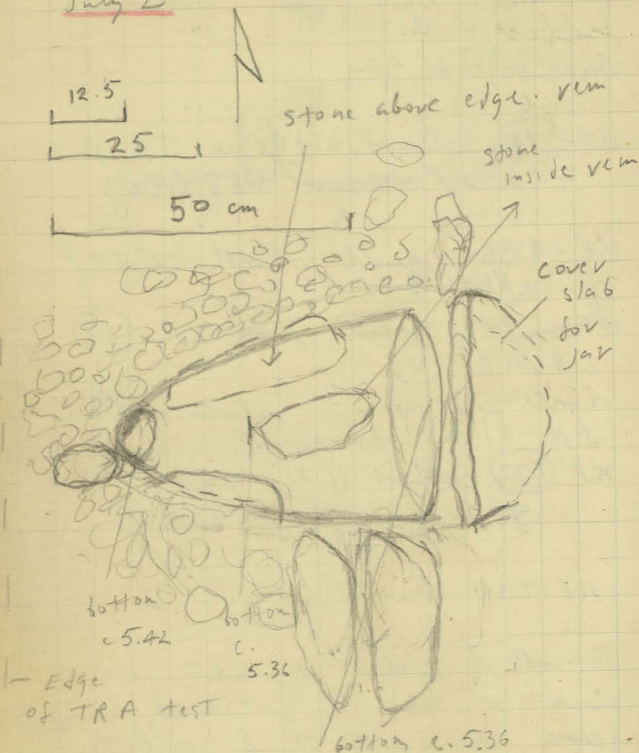 July 2
12.5
25
50 cm
stone above edge. rem
stone
inside rem
cover
slab
for
jar
bottom
c 5.42
bottom
c.
5.36
Edge
of TRA test
bottom c. 5.36